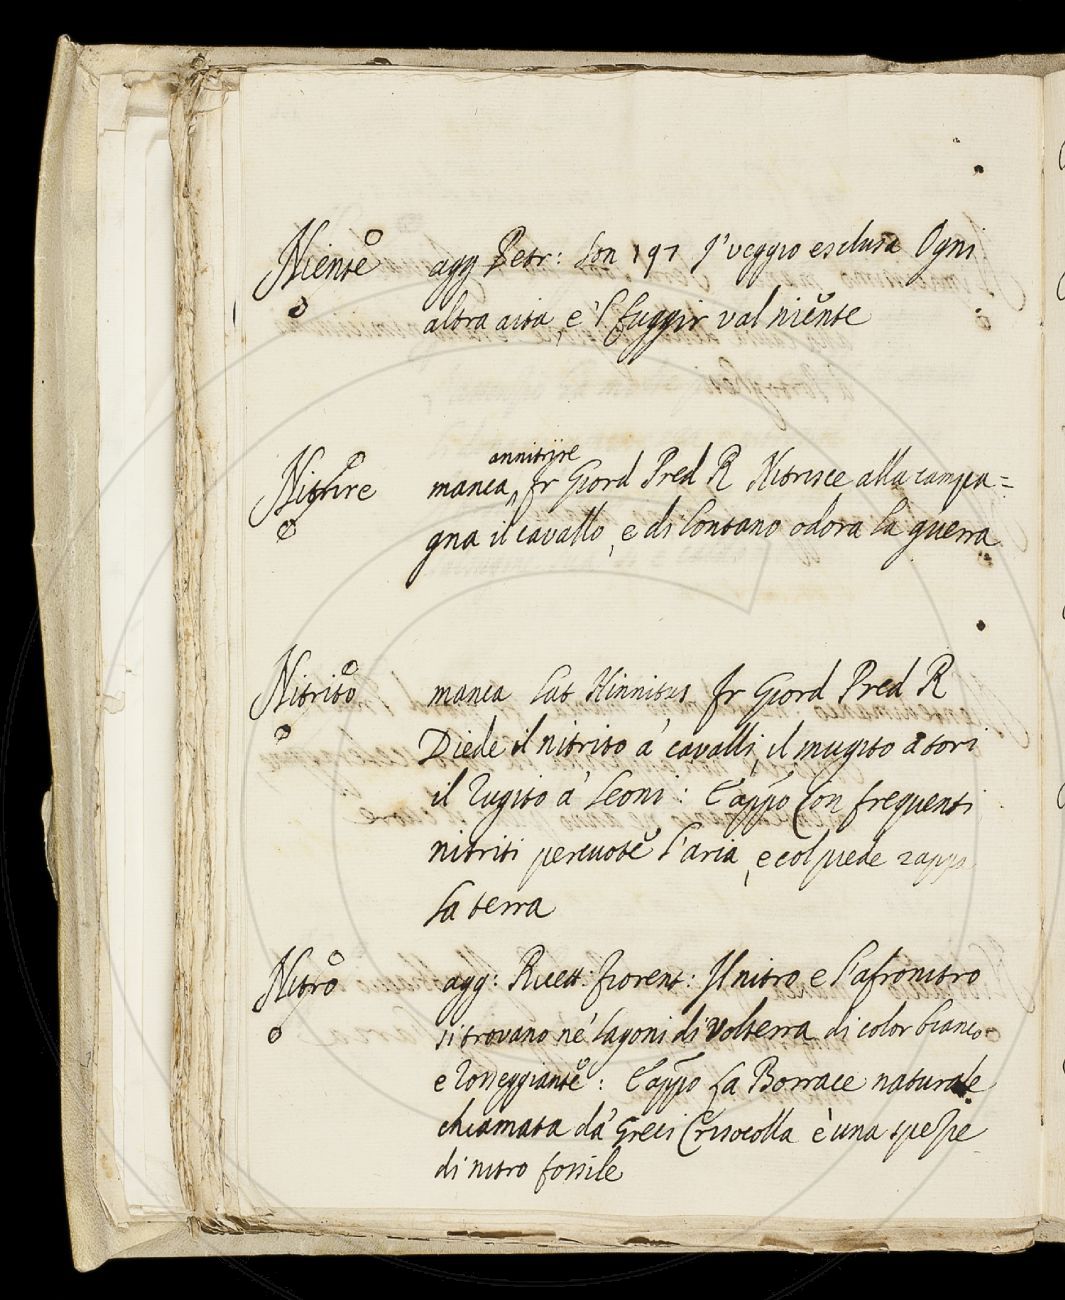 Niente agg Petr: Son 197 J'veggio esclusa Ogni
altra aita, e 'l fuggir val niente
annitrire
Nitrire manca fr Giord Pred R Nitrisce alla campa=
gna il cavallo, e di lontano odora la guerra
Nitrito manca Lat Hinnitus fr Giord Pred R
Diede il nitrito a' cavalli, il mugito a tori
il rugito a' Leoni: E appo Con frequenti
nitriti percuote l'aria, e col piede zappa
la terra
Nitro agg: Ricett: fiorent: Il nitro e l'afronitro
si trovano ne' lagoni di Volterra di color bianco
e rosseggiante: E appo La Borrace naturale
chiamata da' Greci Crisocolla è una spezie
di nitro fossile